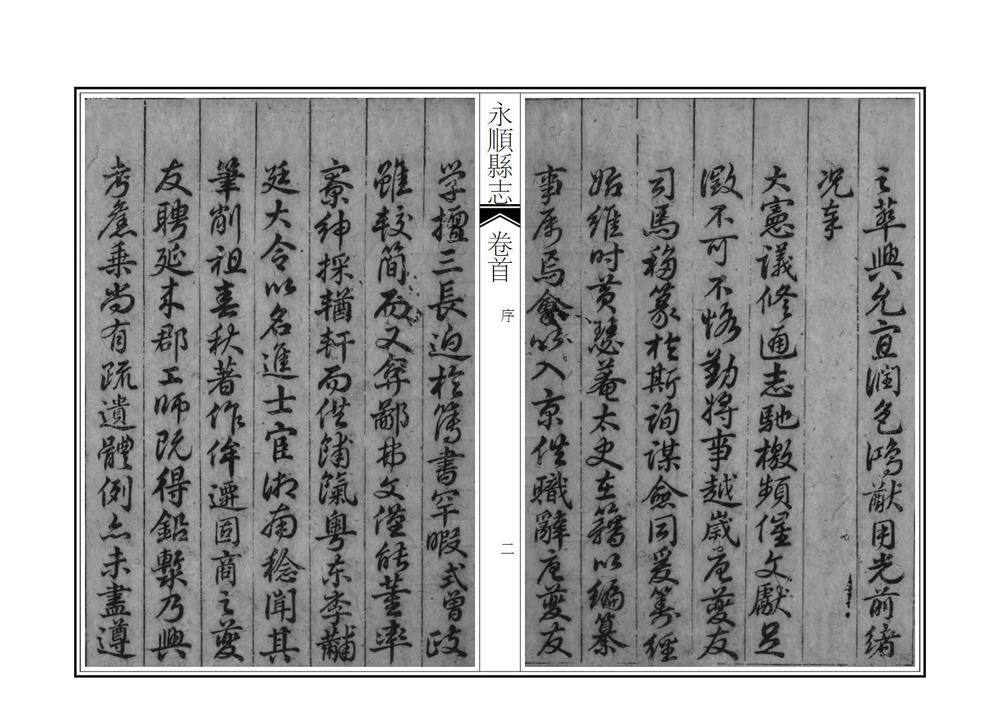 之萃興允宜潤色鴻猷用光前緒
況奉
大憲議修通志馳檄頻催文獻足
徵不可不恪勤將事越歲庚夔友
司馬移篆於斯詢謀僉同爰籌經
始維時黃瑟菴太史在籍以編纂
事屬焉會以入京供職辭夔友
學擅三長迫於簿書罕暇式曾
雖較簡而又弃鄙弗文僅能董率
寮紳採輶軒而供餔氣粵東李黼
廷大令以名進士宦湘南稔聞其
筆削祖春秋著作侔遷固商之夔
友聘延來郡工師既得鉛槧乃興
考舊乘尚有疏遺體例亦未盡遵
永順縣志
卷首
序
二